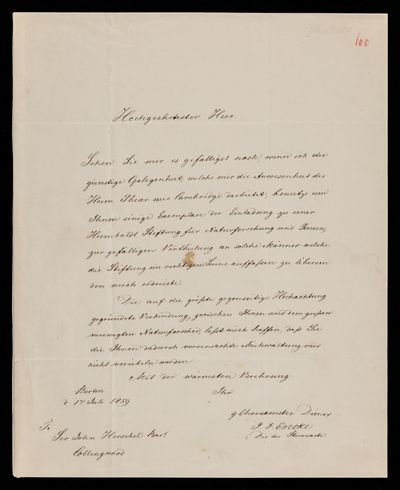 100
Hochgeehrtester Herr.
Sehen Sie mir es gefälligst nach, wenn ich die
günstige Gelegenheit, welche mir die Anwesenheit des
Herrn aus Cambridge darbietet, benutze um
Ihnen einige Exemplare der Einladung zu einer
Humboldt Stiftung für Naturforschung und Reisen,
zur gefälligen Vertheilung an solche Männer welche
die Stiftung im richtigen Sinne auffassen zu
Die auf die größte gegenseitige Hochachtung
gegründete Verbindung, zwischen Ihnen und dem großen
verewigten Naturforscher, läßt mich hoffen, daß Sie
die Ihnen dadurch verursachte Mühwaltung mir
nicht verübeln werden.
Mit der wärmsten Verehrung
Berlin
Ihr
Juli 1859
gehorsamster Diener
J. F. Encke
Dir. der Sternwarte
To
Sir John Herschel Bart
Collingwood